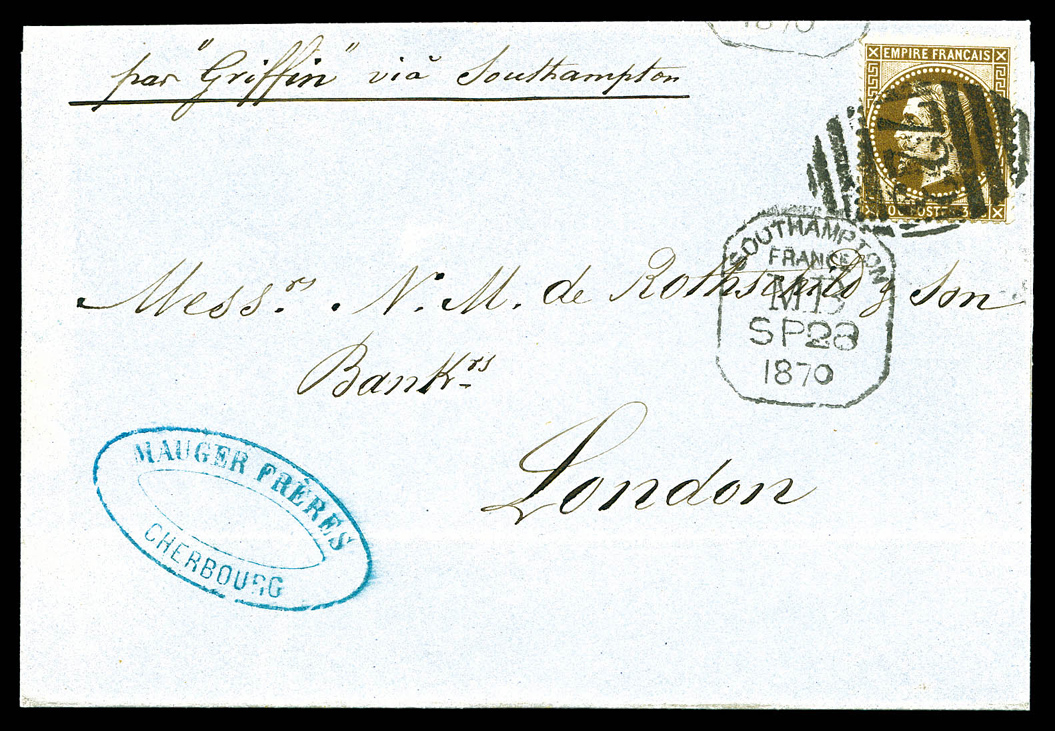 1870
par "Griffin" viâ Southampton
EMPIRE FRANÇAIS
SOUTHAMPTON
FRANCE
SP28
1870
Mess.rs N. M. de Rothschild & Son
Bank.rs
London
MAUGER FRÈRES
CHERBOURG